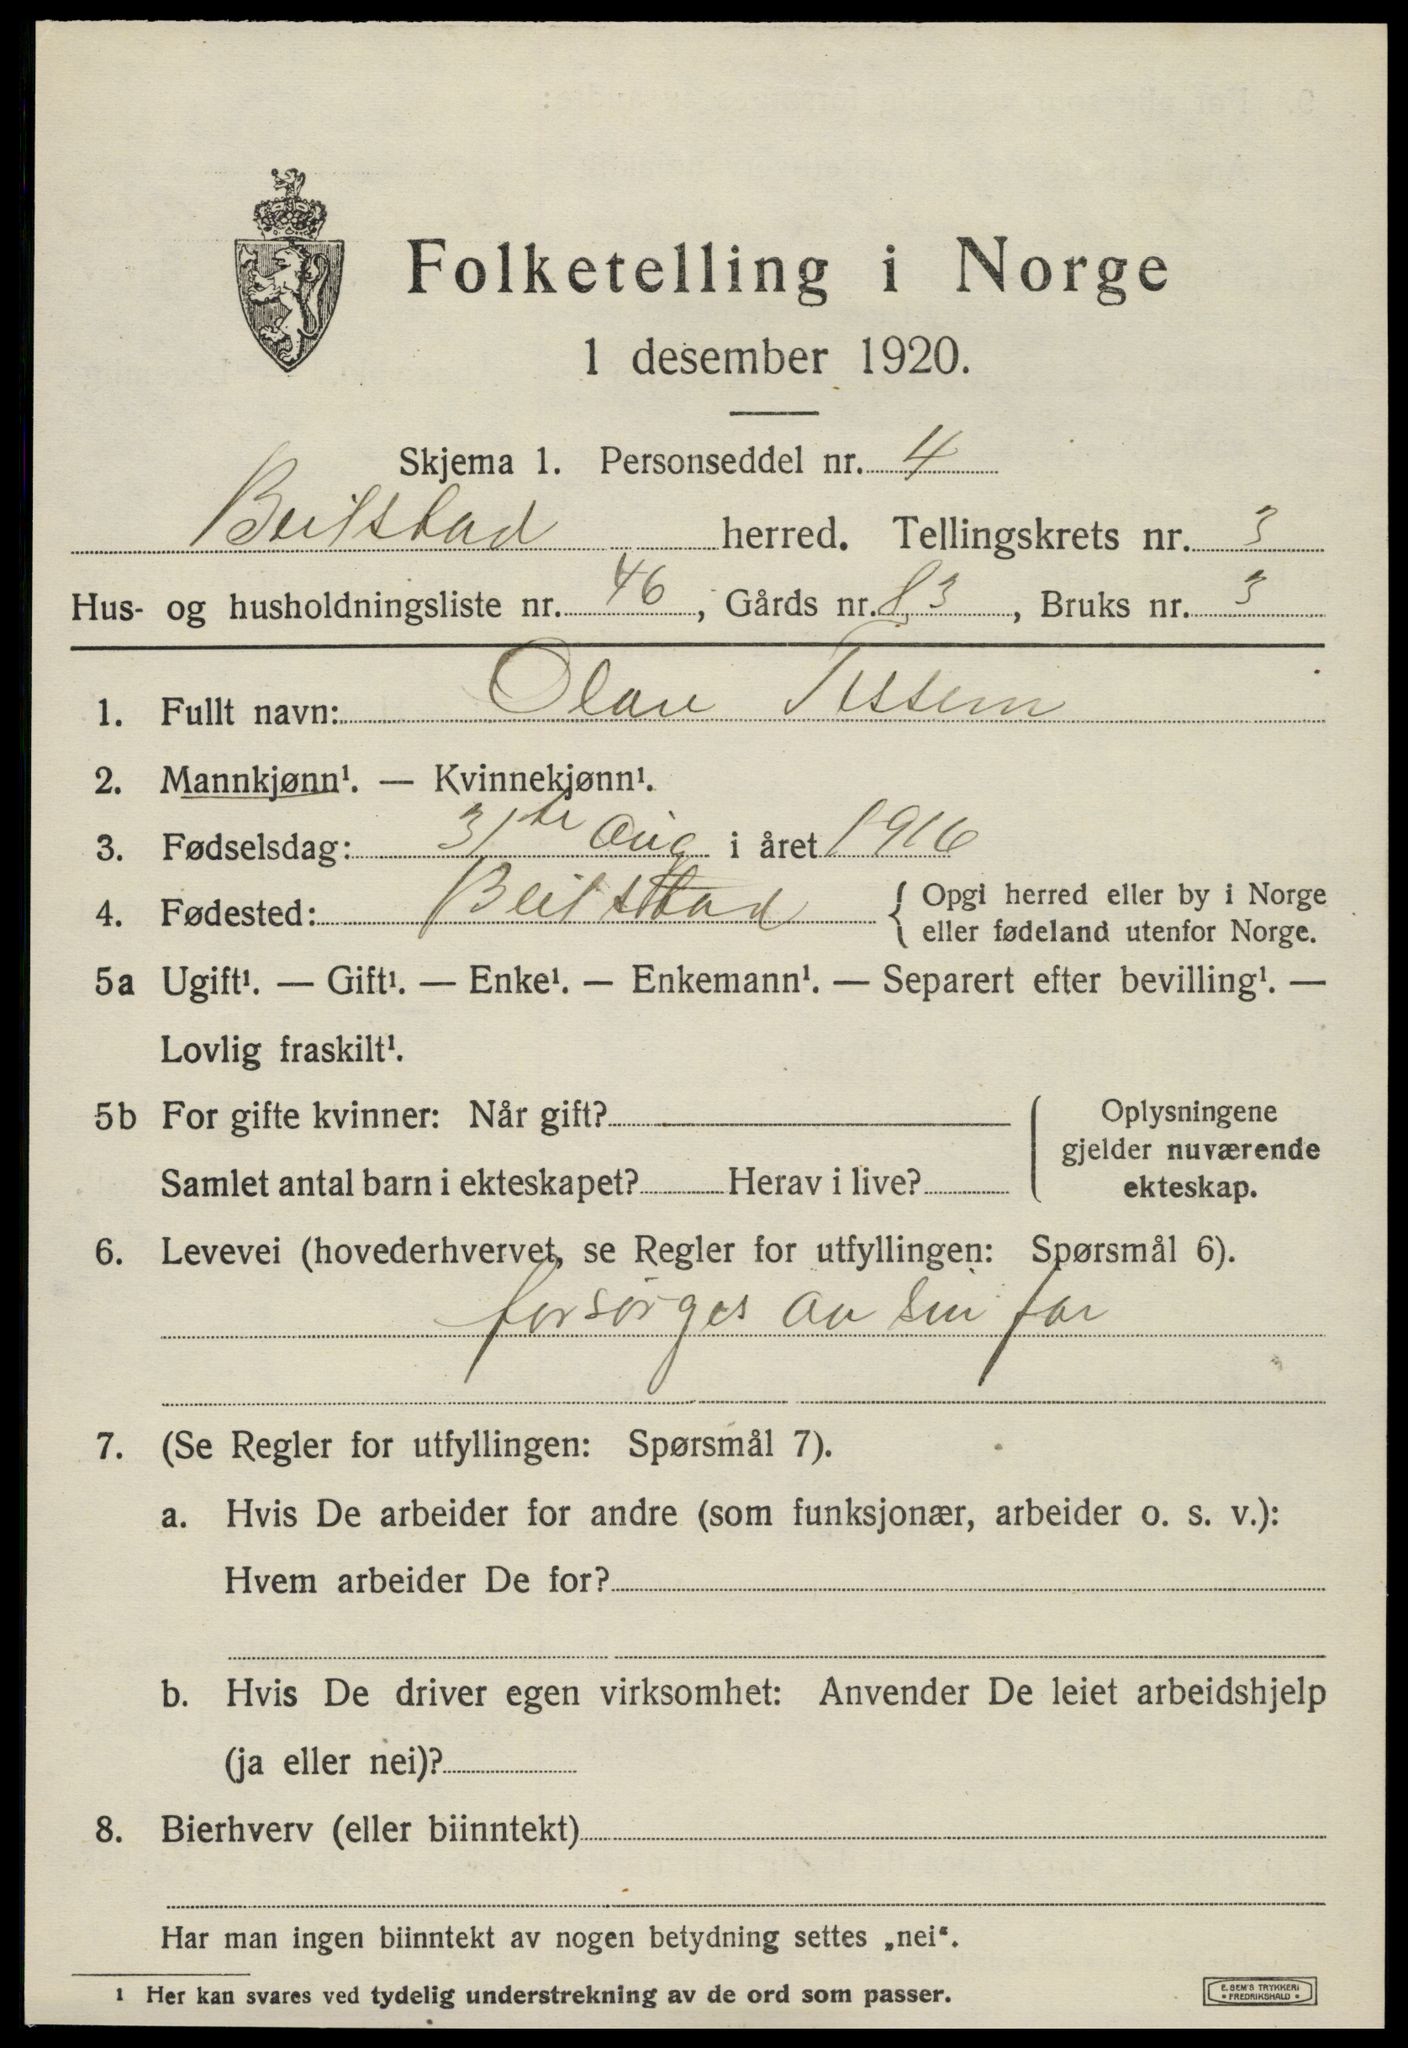 Folketelling i Norge
1 desember 1920.
Skjema 1. Personseddel nr. 4
Beitstad herred. Tellingskrets nr. 3
Hus- og husholdningsliste nr. 46, Gårds nr. 83, Bruks nr. 3
1. Fullt navn: Olav Tessem
2. Mannkjønn¹. — Kvinnekjønn¹.
3. Fødselsdag: 31te Aug i året 1916
4. Fødested: Beitstad { Opgi herred eller by i Norge
eller fødeland utenfor Norge.
5a Ugift¹. — Gift¹. — Enke¹. — Enkemann¹. — Separert efter bevilling¹. —
Lovlig fraskilt¹.
5b For gifte kvinner: Når gift?
Samlet antal barn i ekteskapet? Herav i live?
Oplysningene
gjelder nuværende
ekteskap.
6. Levevei (hovederhvervet, se Regler for utfyllingen: Spørsmål 6).
forsørges av sin far
7. (Se Regler for utfyllingen: Spørsmål 7).
a. Hvis De arbeider for andre (som funksjonær, arbeider o. s. v.):
Hvem arbeider De for?
b. Hvis De driver egen virksomhet: Anvender De leiet arbeidshjelp
(ja eller nei)?
8. Bierhverv (eller biinntekt)
Har man ingen biinntekt av nogen betydning settes „nei“.
1 Her kan svares ved tydelig understrekning av de ord som passer.
E. SEM'S TRYKKERI
• FREDRIKSHALD •